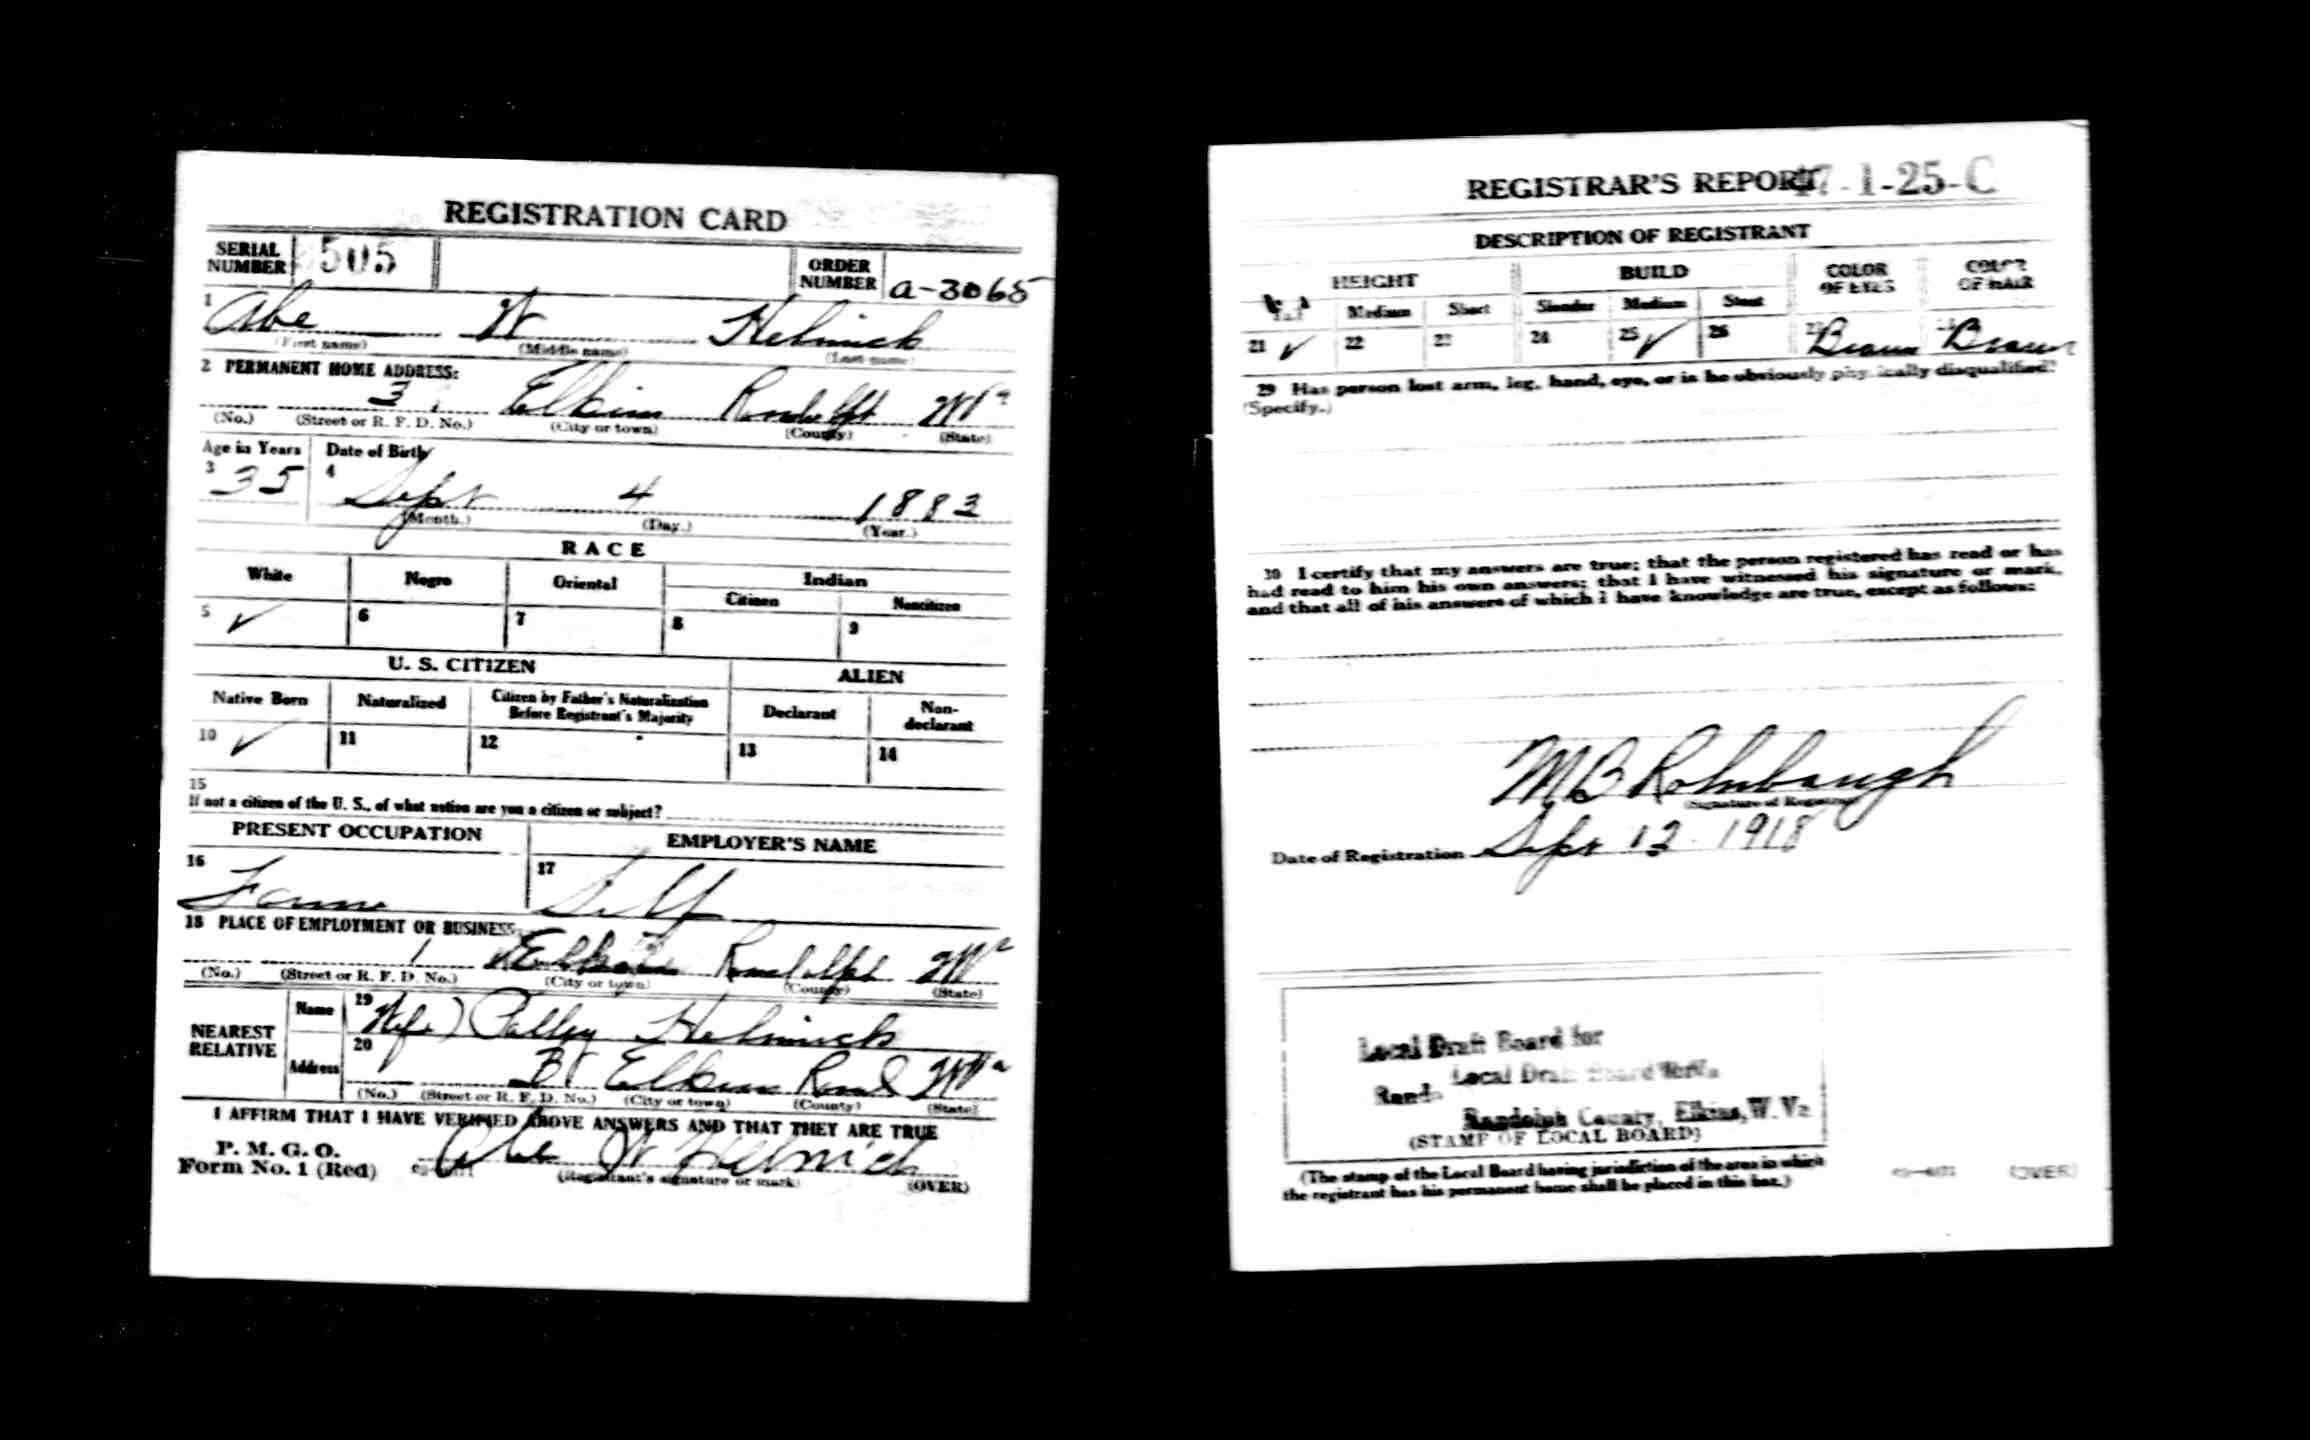 REGISTRATION CARD
SERIAL NUMBER 505 ORDER NUMBER a-3065
1 Abe W Helmick
(First name) (Middle name) (Last name)
2 PERMANENT HOME ADDRESS:
3 Elkins Randolph
(No.) (Street or R. F. D. No.) (City or town) (County) (State)
Age in Years Date of Birth
3 35 4 Sept 4 1883
(Month.) (Day.) (Year.)
RACE
White Negro Oriental Indian
Citizen Noncitizen
5 ✓ 6 7 8 9
U. S. CITIZEN ALIEN
Native Born Naturalized Citizen by Father's Naturalization Before Registrant's Majority Declarant Non-declarant
10 ✓ 11 12 13 14
15
If not a citizen of the U. S., of what nation are you a citizen or subject?
PRESENT OCCUPATION EMPLOYER'S NAME
16 17
Self
18 PLACE OF EMPLOYMENT OR BUSINESS:
Elkins Randolph
(No.) (Street or R. F. D. No.) (City or town) (County) (State)
NEAREST RELATIVE Name 19 Helmick
Address 20 Elkins Rand
(No.) (Street or R. F. D. No.) (City or town) (County) (State)
I AFFIRM THAT I HAVE VERIFIED ABOVE ANSWERS AND THAT THEY ARE TRUE
P. M. G. O.
Form No. 1 (Red) Abe W Helmick
(Registrant's signature or mark) (OVER)
REGISTRAR'S REPORT 47-1-25-C
DESCRIPTION OF REGISTRANT
HEIGHT BUILD COLOR OF EYES COLOR OF HAIR
Tall Medium Short Slender Medium Stout
21 ✓ 22 23 24 25 ✓ 26 27 Brown Brown
29 Has person lost arm, leg, hand, eye, or is he obviously physically disqualified?
(Specify.)
30 I certify that my answers are true; that the person registered has read or has
had read to him his own answers; that I have witnessed his signature or mark,
and that all of his answers of which I have knowledge are true, except as follows:
M B Rohrbaugh
(Signature of Registrar)
Date of Registration Sept 12 - 1918
Local Draft Board for
Local Draft Board
Rand
Randolph County, Elkins, W. Va
(STAMP OF LOCAL BOARD)
(The stamp of the Local Board having jurisdiction of the area in which
the registrant has his permanent home shall be placed in this box.)
(OVER)